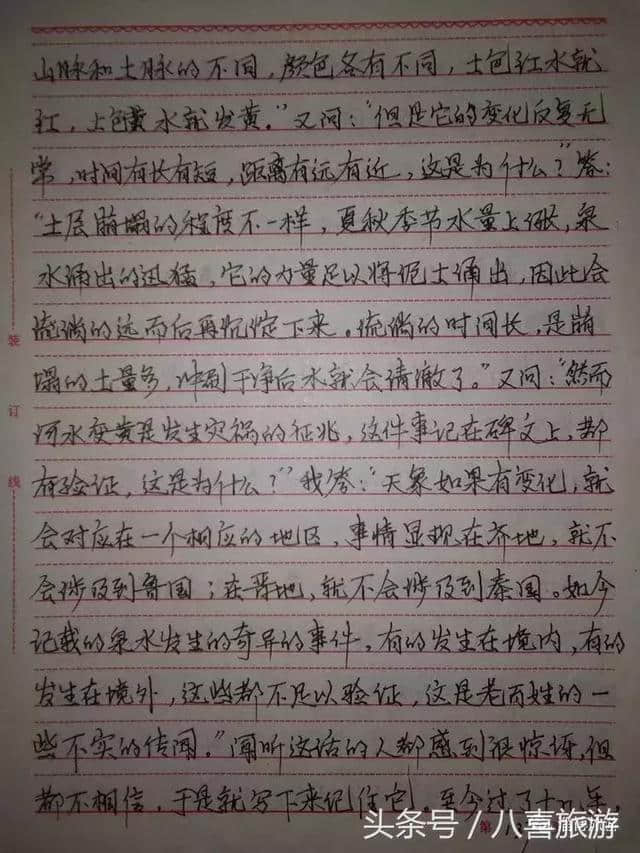 山脉和土脉的不同，颜色各有不同，土色红水就
红，土色黄水就发黄。”又问：“但是它的变化反复无
常，时间有长有短，距离有远有近，这是为什么？”答：
“土层崩塌的程度不一样，夏秋季节水量上涨，泉
水涌出的迅猛，它的力量足以将泥土涌出，因此会
流淌的远而后再沉淀下来。流淌的时间长，是崩
塌的土量多，冲刷干净后水就会清澈了。”又问：“然而
河水变黄是发生灾祸的征兆，这件事记在碑文上，都
有验证，这是为什么？”我答：“天象如果有变化，就
会对应在一个相应的地区，事情显现在齐地，就不
会涉及到鲁国；在晋地，就不会涉及到秦国。如今
记载的泉水发生的奇异的事件，有的发生在境内，有的
发生在境外，这些都不足以验证，这是老百姓的一
些不实的传闻。”闻听这话的人都感到很惊讶，但
都不相信，于是就写下来记住它。至今过了十九年，
装
订
线
第
头条号／八喜旅游